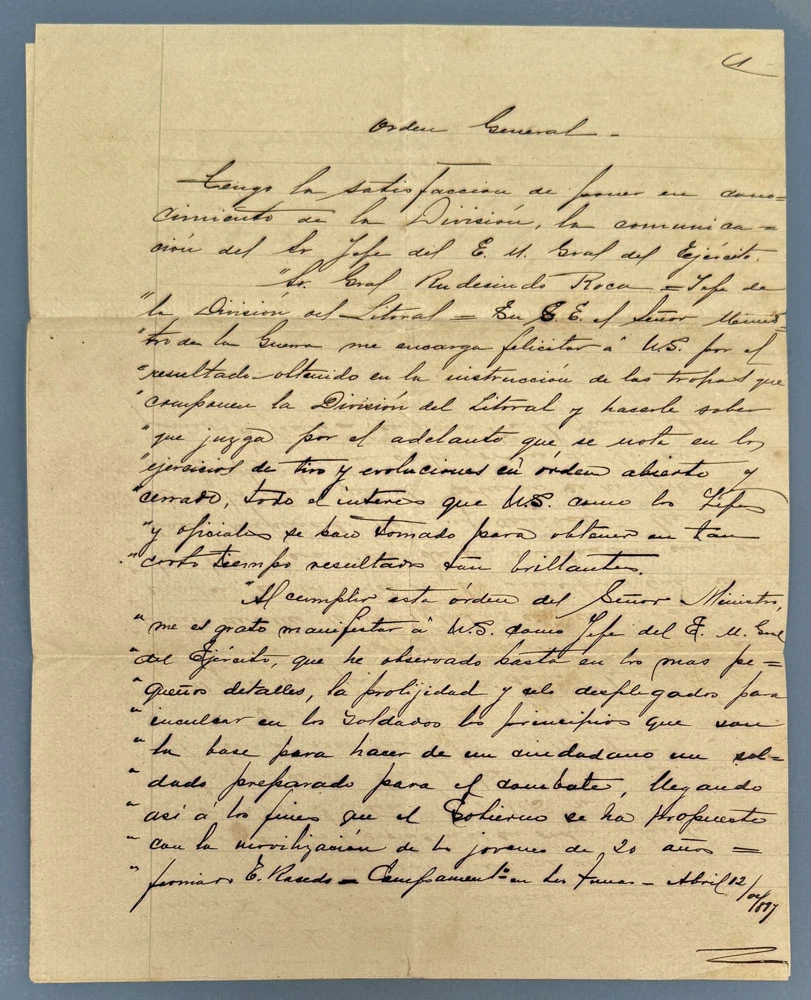 Orden General -
Tengo la satisfaccion de poner en cono=
cimiento de la División, la comunica=
ción del Sr Jefe del E. M. Gral del Ejército.
"Sr. Gral Rudesindo Roca = Jefe de
"la División del Litoral = S. E. el Señor Minis=
"tro de la Guerra me encarga felicitar á U.S. por el
"resultado obtenido en la instrucción de las tropas que
"componen la División del Litoral y hacerle saber
"que juzga por el adelanto que se nota en los
"ejercicios de tiro y evoluciones en órden abierto y
"cerrado, todo el interes que U.S. como los Jefes
"y oficiales se han tomado para obtener en tan
"corto tiempo resultados tan brillantes.
"Al cumplir esta órden del Señor Ministro,
"me es grato manifestar á U.S. como Jefe del E. M. Gral
"del Ejército, que he observado hasta en los mas pe=
"queños detalles, la prolijidad y celo desplegados para
"inculcar en los soldados los principios que son
"la base para hacer de un ciudadano un sol=
"dado preparado para el combate, llegando
"así á los fines que el Gobierno se ha propuesto
"con la movilización de los jovenes de 20 años =
"firmado E. = Campamento en - Abril 12/897